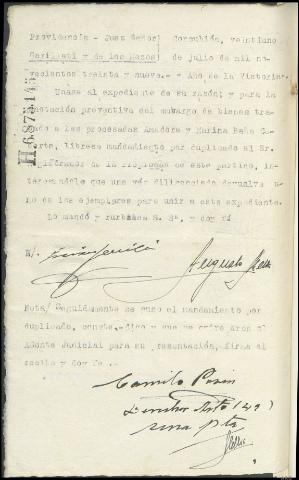 Providencia - Juez Señor Corcubión, veintiuno
Garilleti y de las Mazos de julio de mil no-
vecientos treinta y nueve.- Año de la Victoria.
Unase al expediente de su razón; y para la
anotación preventiva del embargo de bienes tra-
bado a las procesadas Amadora y Marina
librese mandamiento por duplicado al Sr.
de la Propiedad de este partido, in-
teresandole que una vez diligenciado devuelva u-
no de los ejemplares para unir a este expediente.
Lo mandó y rubrica S. Sª. y doy fé
E/.
Augusto
Nota/ Seguidamente se puso el mandamiento por
duplicado, conste.- digo y que se entre
Agente Judicial para su presentación, firma el
recibo y doy fe.-
Camilo
una pta